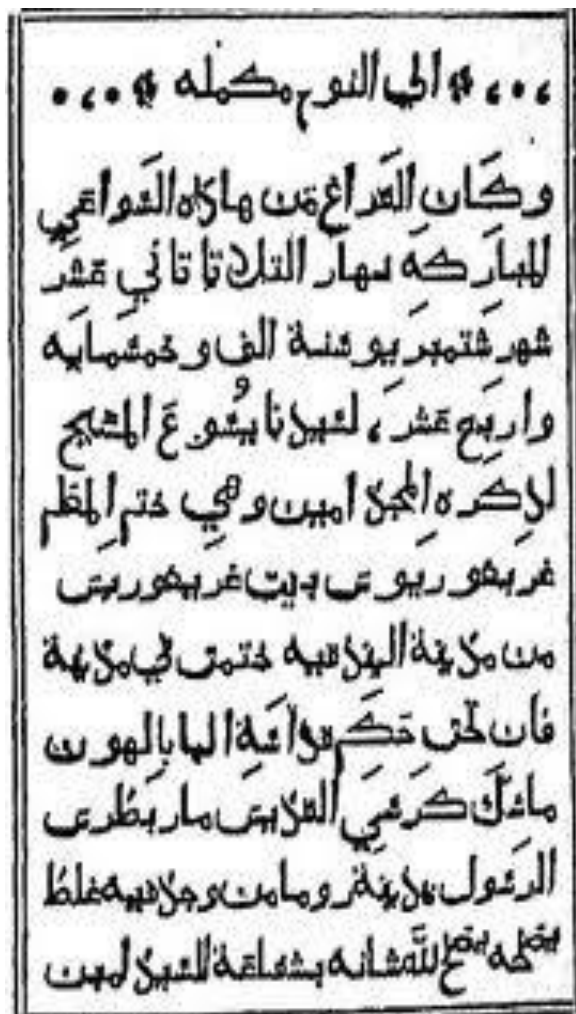 الي النوح مكمله
وكان الفراغ من هاذه السواعي
المباركه نهار التلاتا تاني عشر
شهر شتمبريو سنة الف و خمسمايه
واربع عشر ، لسيدنا يسوع المسيح
لذكره المجد امين وهي ختم المعلم
غريغوريوس بيت غريغوريس
من مدينة البندقيه ختمت في مدينة
فان تحت حكم قداسة البابا لهون
ماسك كرسي القديس مار بطرس
الرسول بمدينة روما من وجد فيه غلط
يصلحه يصلح الله شانه بشفاعة السيد امين